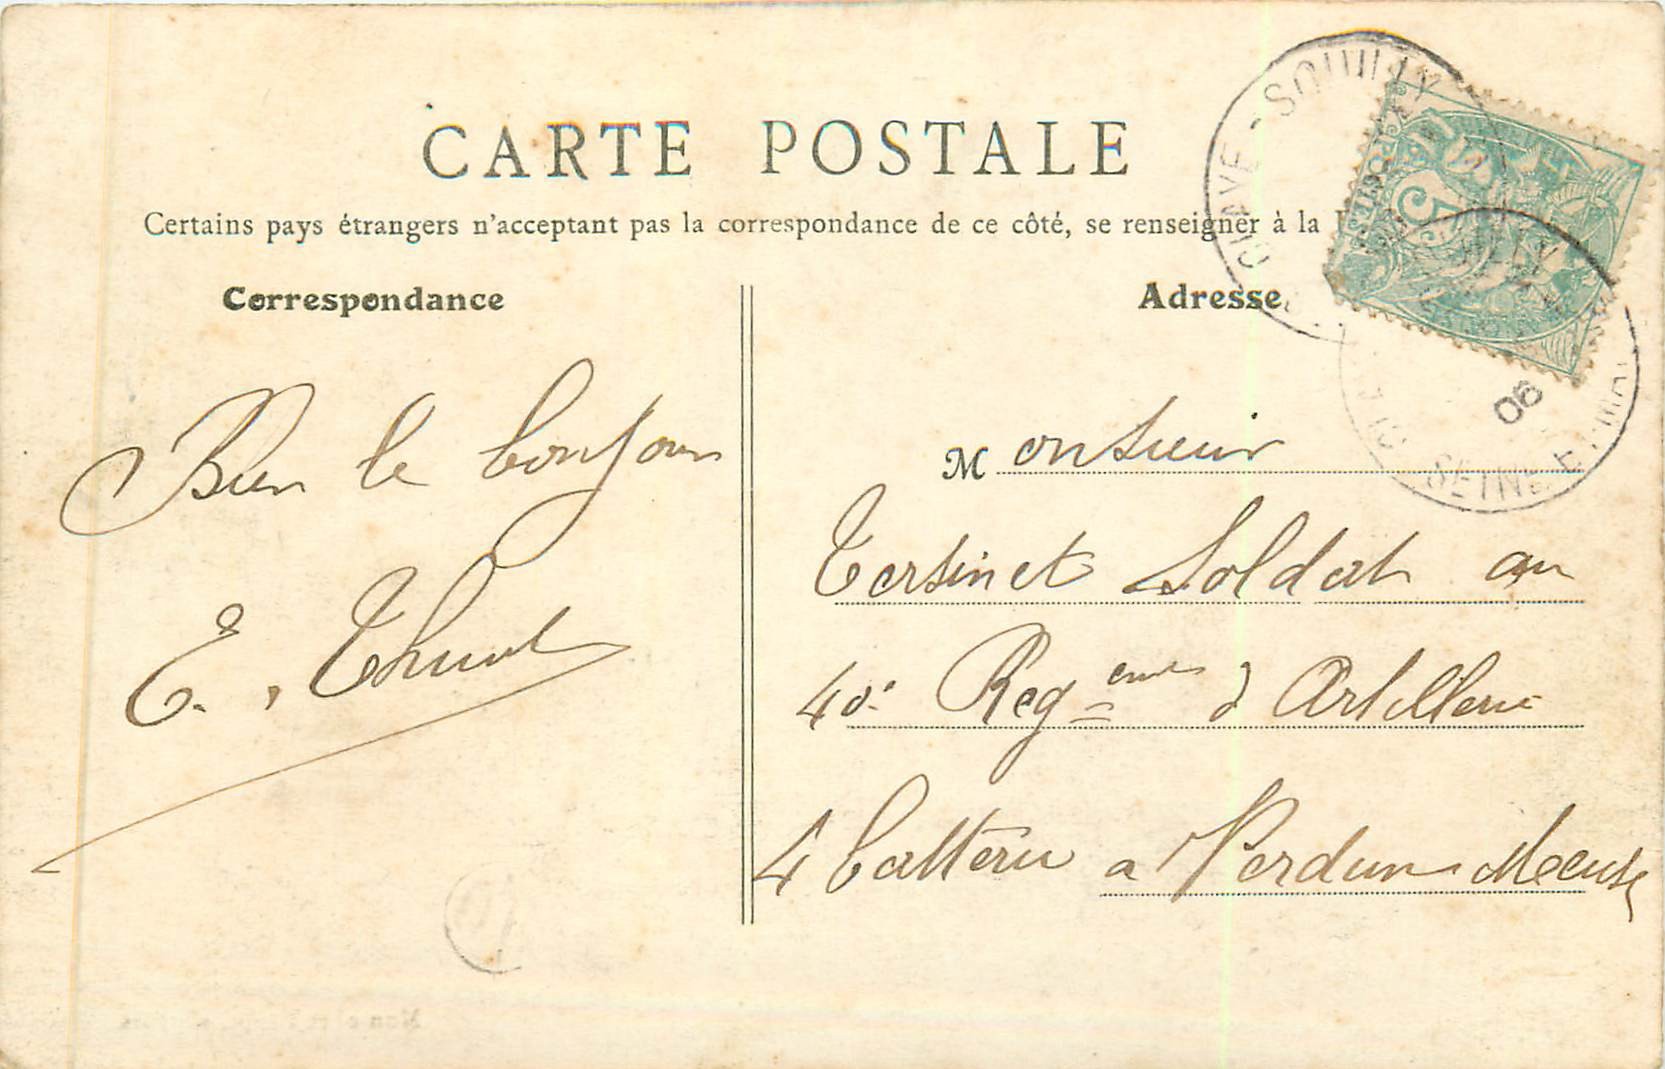 CARTE POSTALE
Certains pays étrangers n'acceptant pas la correspondance de ce côté, se renseigner à la
Correspondance
Adresse
Bien le bonjour
E. Thuret
Monsieur
Tersinet Soldat au
40e Regement d Artillerie
4 Batterie a Verdun Meuse
CLAYE-SOUILLY
SEINE-E
06
5